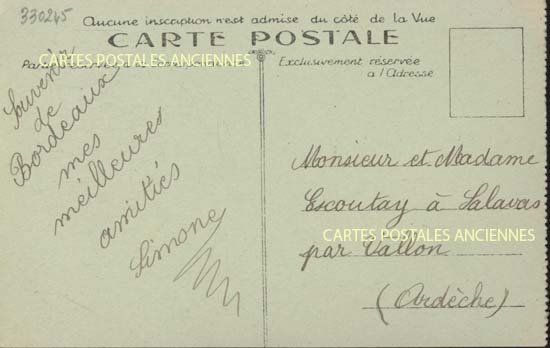 330245
Aucune inscription n'est admise du côté de la Vue
CARTE POSTALE
CARTES POSTALES ANCIENNES
Exclusivement réservée
à l'Adresse
Souvenir
de
Bordeaux
mes
meilleures
amitiés
Simone
Monsieur et Madame
Escoutay à Salavas
CARTES POSTALES ANCIENNES
par Vallon
(Ardèche)